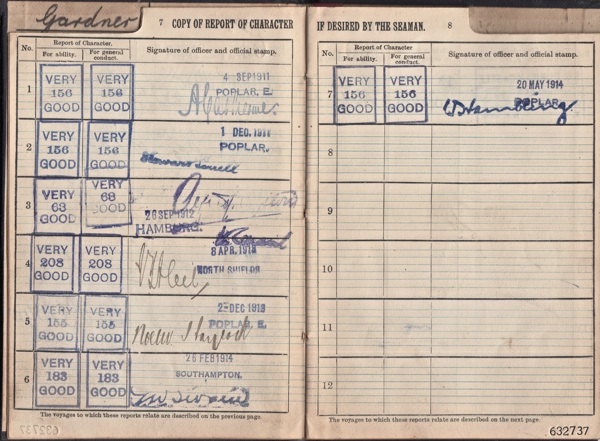 Gardner
7 COPY OF REPORT OF CHARACTER
No.
Report of Character.
For ability.
For general conduct.
Signature of officer and official stamp.
1
VERY 156 GOOD
VERY 156 GOOD
4 SEP 1911
POPLAR, E.
2
VERY 156 GOOD
VERY 156 GOOD
1 DEC. 1911
POPLAR.
3
VERY 63 GOOD
VERY 63 GOOD
26 SEP 1912
HAMBURG.
4
VERY 208 GOOD
VERY 208 GOOD
8 APR. 1913
NORTH SHIELDS
5
VERY 155 GOOD
VERY 155 GOOD
2-DEC 1913
POPLAR, E.
6
VERY 183 GOOD
VERY 183 GOOD
26 FEB 1914
SOUTHAMPTON.
The voyages to which these reports relate are described on the previous page.
632737
IF DESIRED BY THE SEAMAN. 8
No.
Report of Character
For ability.
For general conduct.
Signature of officer and official stamp.
7
VERY 156 GOOD
VERY 156 GOOD
20 MAY 1914
POPLAR.
8
9
10
11
12
The voyages to which these reports relate are described on the next page.
632737